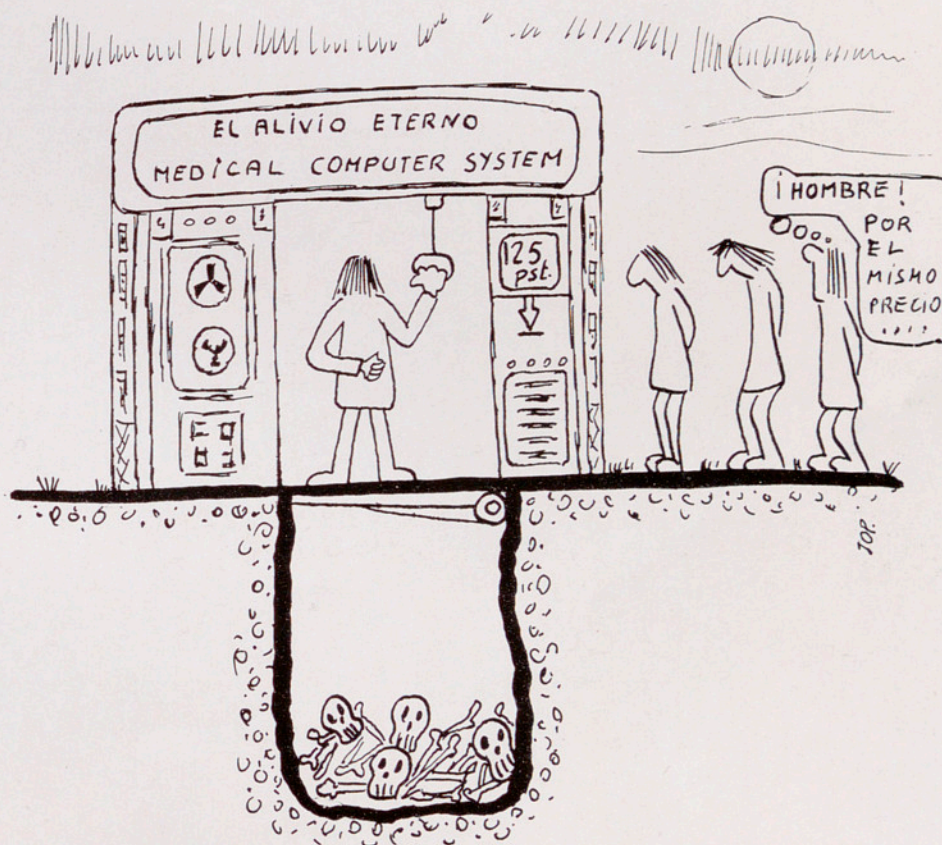 EL ALIVIO ETERNO
MEDICAL COMPUTER SYSTEM
125
pst.
¡HOMBRE!
POR
EL
MISMO
PRECIO
....
JOP.